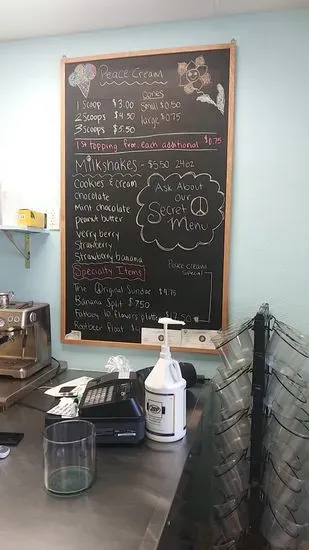 Peace Cream
1 Scoop $3.00
2 Scoops $4.50
3 Scoops $5.50
Cones
Small $0.50
large $0.75
1st topping free, each additional $0.75
Milkshakes - $5.50 24oz
Cookies & cream
Chocolate
Mint chocolate
peanut butter
verry berry
Strawberry
Strawberry banana
Ask About
our
Secret
Menu
Specialty Items
The Original Sundae $9.75
Banana Split $7.50
Fatboy 10 flavors $17.50
Rootbeer float
Peace cream
special